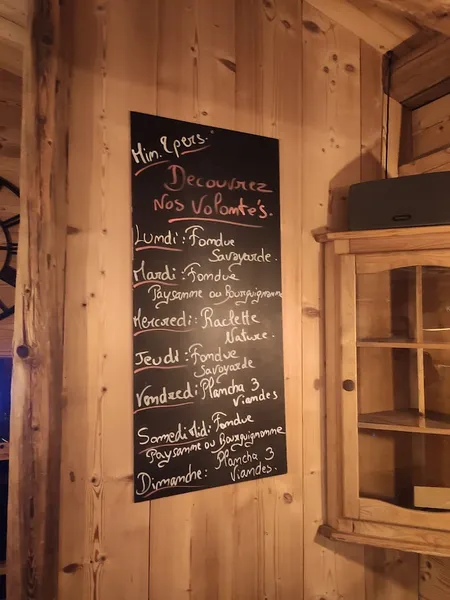 Min. 2 pers.
Decouvrez
Nos Volonté's.
Lundi : Fondue
Savoyarde.
Mardi : Fondue
Paysanne ou Bourguignonne
Mercredi : Raclette
Nature.
Jeudi : Fondue
Savoyarde
Vendredi : Plancha 3
Viandes
Samedi Midi : Fondue
Paysanne ou Bourguignonne
Dimanche : Plancha 3
Viandes.